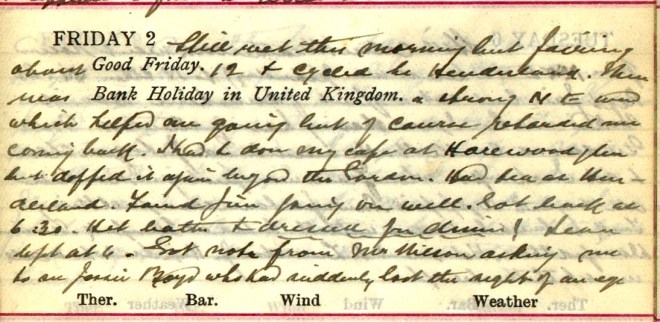 FRIDAY 2 Still wet this morning but fairing
about Good Friday. 12 & cycled to Henderland. There
was Bank Holiday in United Kingdom. a strong N E wind
which helped me going but of course retarded me
coming back. I had to don my cape at Harewoodglen
but doffed it again beyond the Gordon. Had tea at Hen-
derland. Found Jim going on well. Got back at
6.30. Hot bath & dressed for dinner! Jean
dept at 6. Got note from Mr Wilson asking me
to see Jessie Boyd who had suddenly lost the sight of an eye
Ther. Bar. Wind Weather